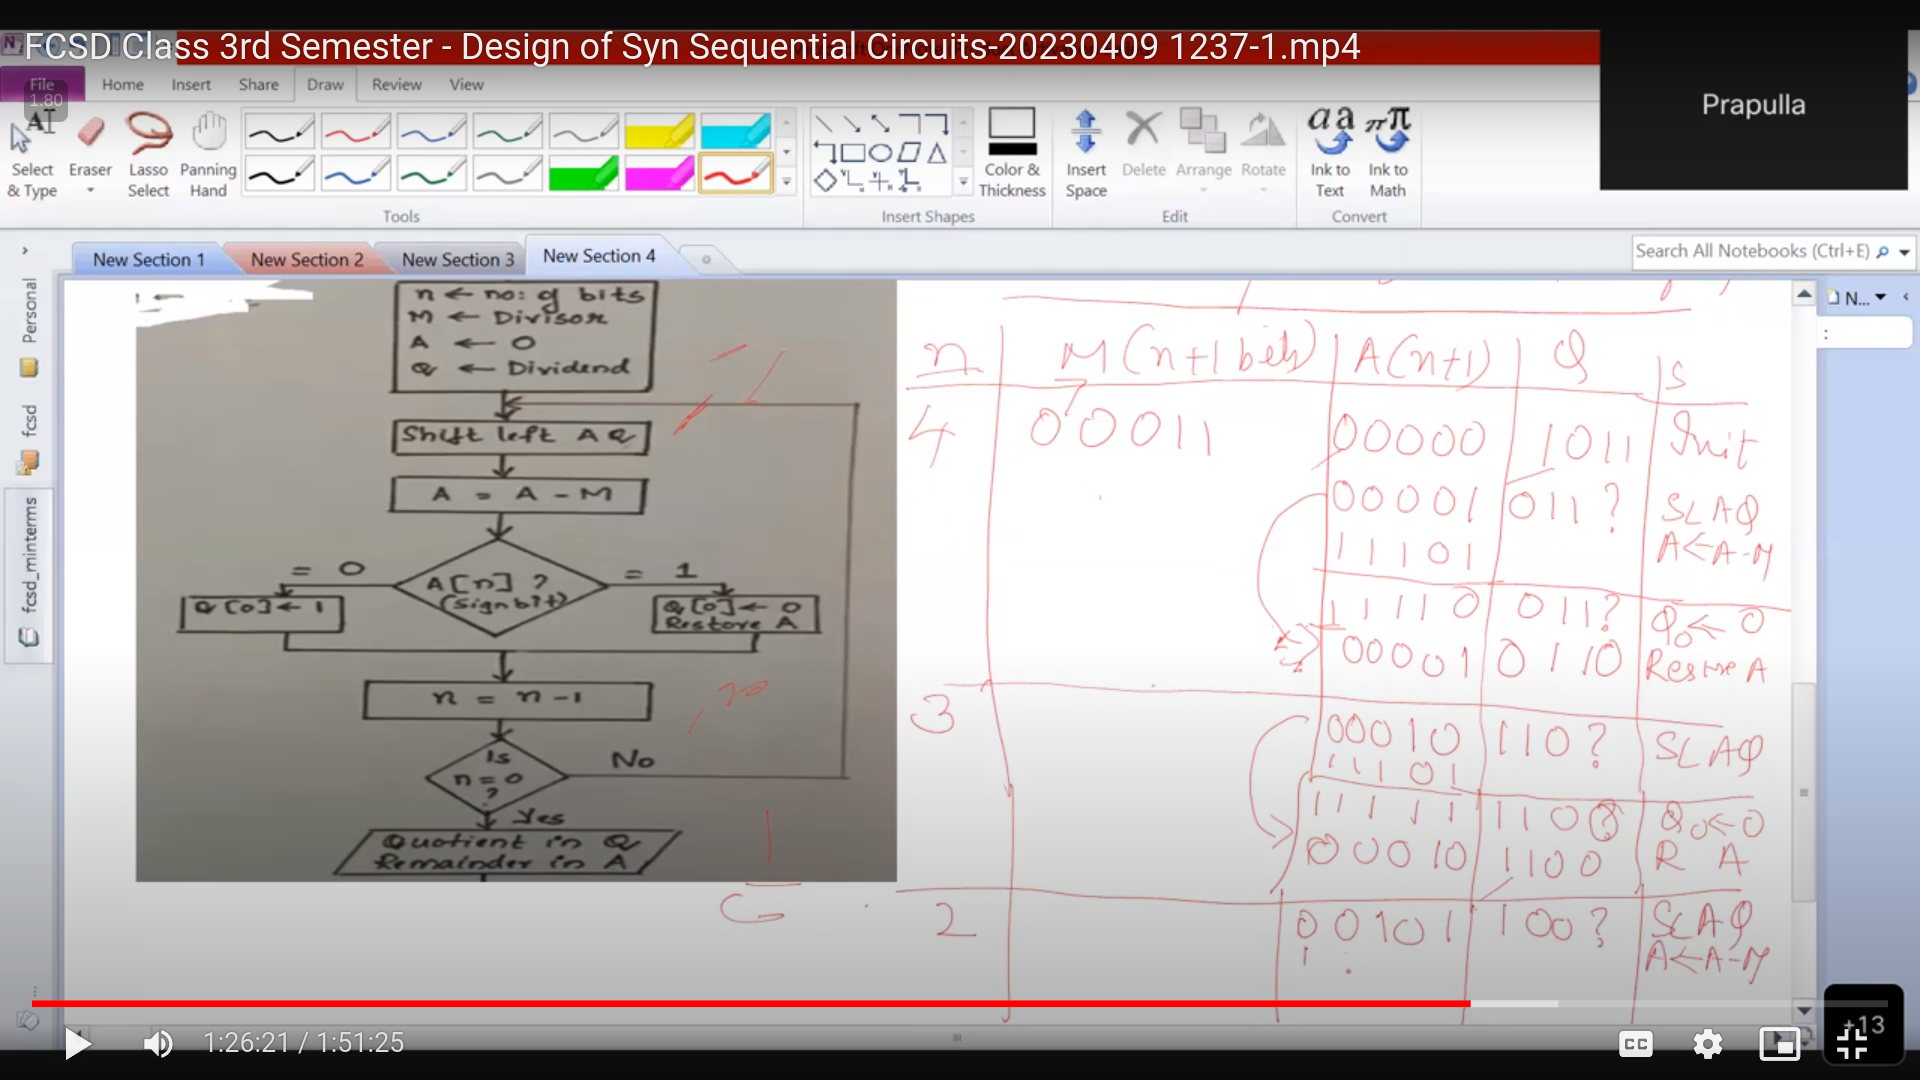 FCSD Class 3rd Semester - Design of Syn Sequential Circuits-20230409 1237-1.mp4
Prapulla
File Home Insert Share Draw Review View
1.80
Select & Type
Eraser
Lasso Select
Panning Hand
Color & Thickness
Insert Space
Delete
Arrange
Rotate
Ink to Text
Ink to Math
Tools
Insert Shapes
Edit
Convert
New Section 1
New Section 2
New Section 3
New Section 4
Search All Notebooks (Ctrl+E)
N...
Personal
fcsd
fcsd_minterms
n ← no: of bits
M ← Divisor
A ← 0
Q ← Dividend
Shift left AQ
A = A - M
A[n] ?
(sign bit)
= 0
= 1
Q[0] ← 1
Q[0] ← 0
Restore A
n = n - 1
Is
n = 0
?
No
Yes
Quotient in Q
Remainder in A
n M (n+1 bits) A (n+1) Q S
4 00011 00000 1011 Init
00001 011? SLAQ
11101 A←A-M
11110 011? Q0←0
00001 0110 Restore A
3 00010 110? SLAQ
11101
11111 110? Q0←0
00010 1100 R A
2 00101 100? SLAQ
1 A←A-M
1:26:21 / 1:51:25
CC
+13